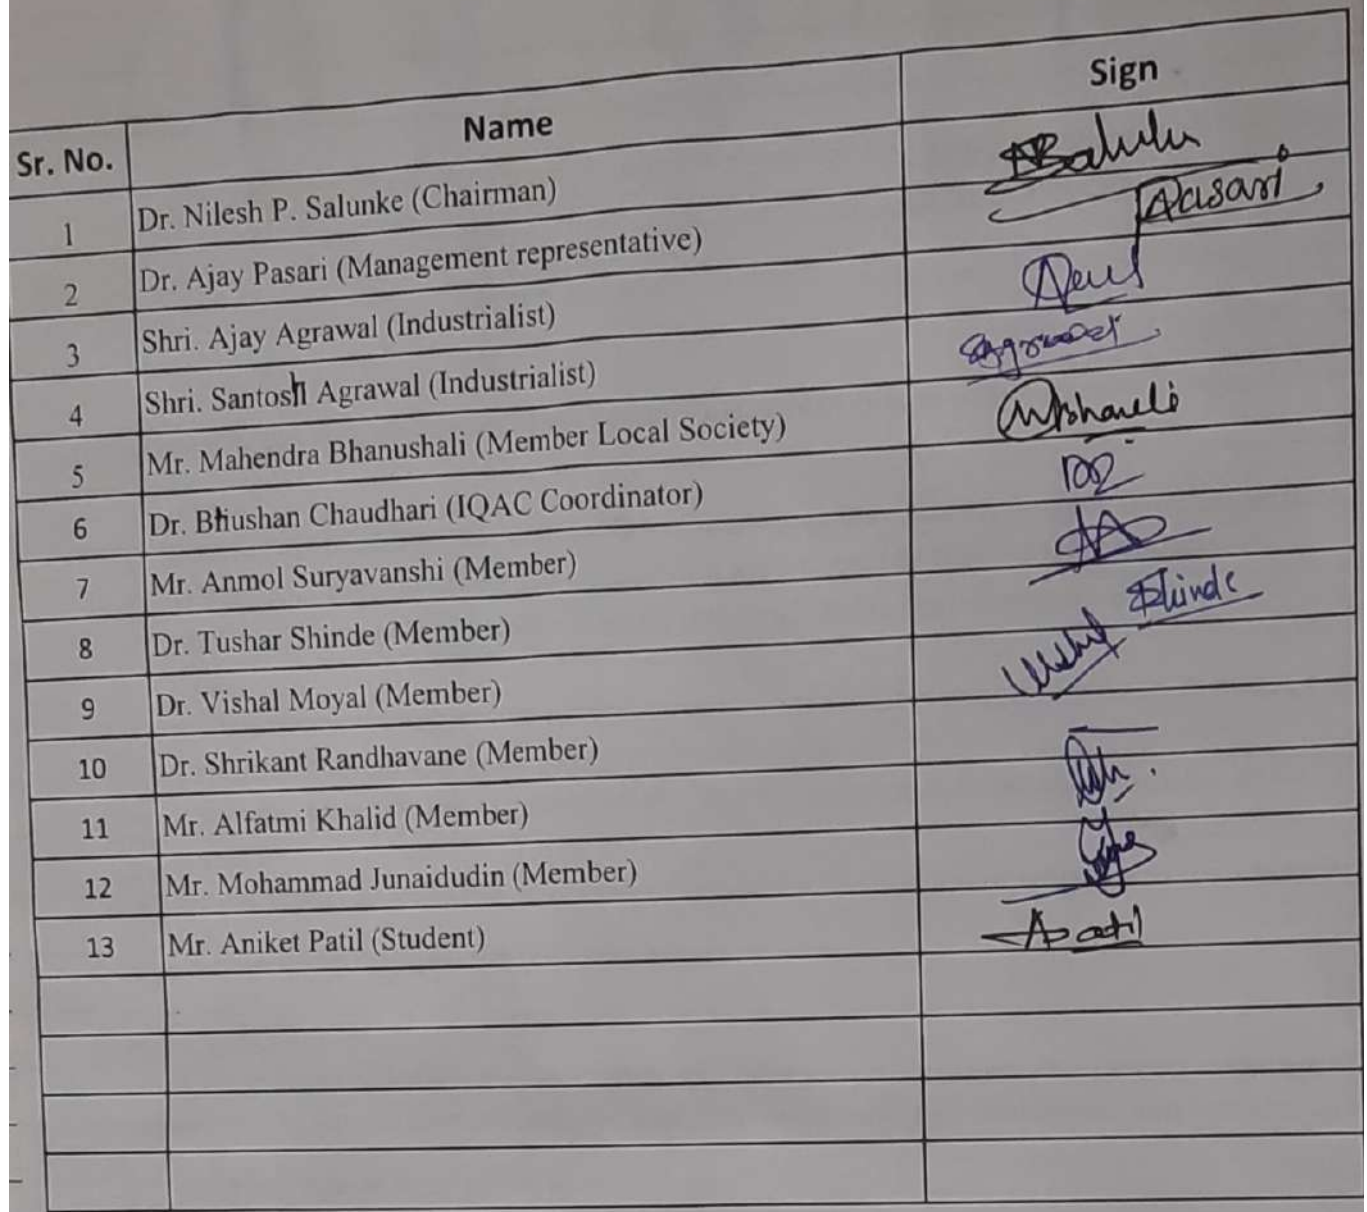 Sr. No. Name Sign
1 Dr. Nilesh P. Salunke (Chairman)
2 Dr. Ajay Pasari (Management representative) Pasari
3 Shri. Ajay Agrawal (Industrialist)
4 Shri. Santosh Agrawal (Industrialist)
5 Mr. Mahendra Bhanushali (Member Local Society)
6 Dr. Bhushan Chaudhari (IQAC Coordinator)
7 Mr. Anmol Suryavanshi (Member)
8 Dr. Tushar Shinde (Member) Shinde
9 Dr. Vishal Moyal (Member)
10 Dr. Shrikant Randhavane (Member)
11 Mr. Alfatmi Khalid (Member)
12 Mr. Mohammad Junaidudin (Member)
13 Mr. Aniket Patil (Student) Apatil